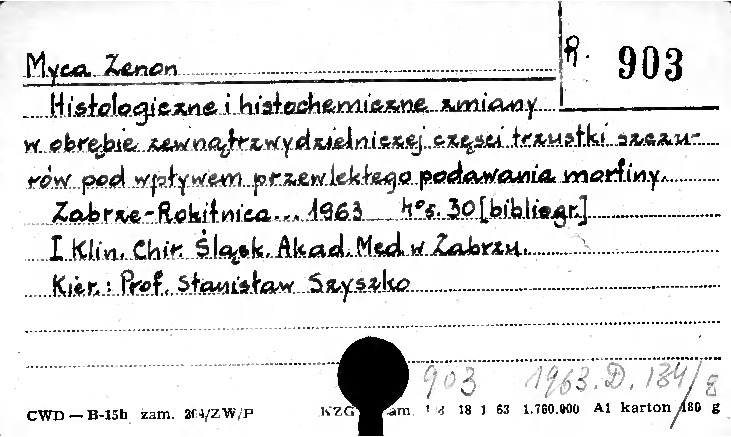 R. 903
Myca Zenon
Histologiczne i histochemiczne zmiany
w obrębie zewnątrzwydzielniczej części trzustki szczu-
rów pod wpływem przewlekłego podawania morfiny.
Zabrze-Rokitnica... 1963 4° s. 30 [bibliogr.]
I Klin. Chir. Śląsk. Akad. Med. w Zabrzu.
Kier.: Prof. Stanisław Szyszko
903 1963.D.134/8
CWD — B-15b zam. 264/ZW/P KZG am. 18 1 63 1.760.000 A1 karton 180 g